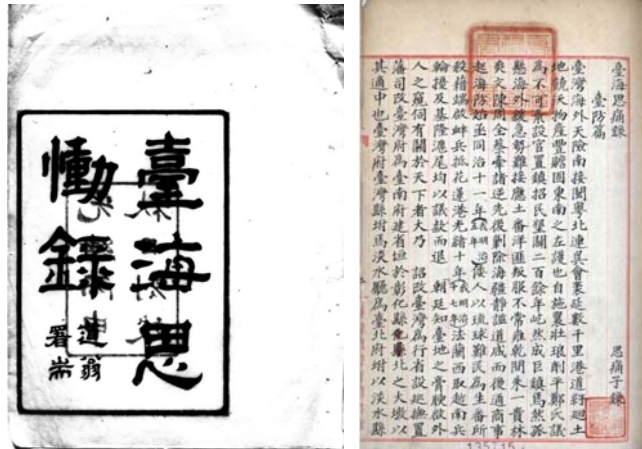 臺海思
慟錄
蘧翁
署耑
臺海思痛錄
臺防篇 思痛子錄
臺灣海外天險南接閩粵北連吳會袤延數千里港道紆迴土
地饒沃物産豐贍固東南之左護也自施襄壯琅削平鄭氏議
為不可棄設官置鎮招民墾闢二百餘年屹然成巨鎮焉然孤
懸海外緩急勢難接應土番洋匪叛服不常雍乾間朱一貴林
爽文陳周全蔡牽諸逆先後剿除海疆靜謐道咸而後通商事
起海防始亟同治十一年倭人以琉球難民為生番所
殺藉端啟衅兵抵花蓮港光緒十年法蘭西取越南兵
輪擾及基隆滬尾均以議款而退 朝廷知臺地之膏腴啟外
人之窺伺有關於天下者大乃 詔改臺灣為行省設巡撫置
藩司改臺灣府為臺南府建省垣於彰化縣北之大墩以
其適中也臺灣府臺灣縣坿焉淡水廳為臺北府坿以淡水縣
135715